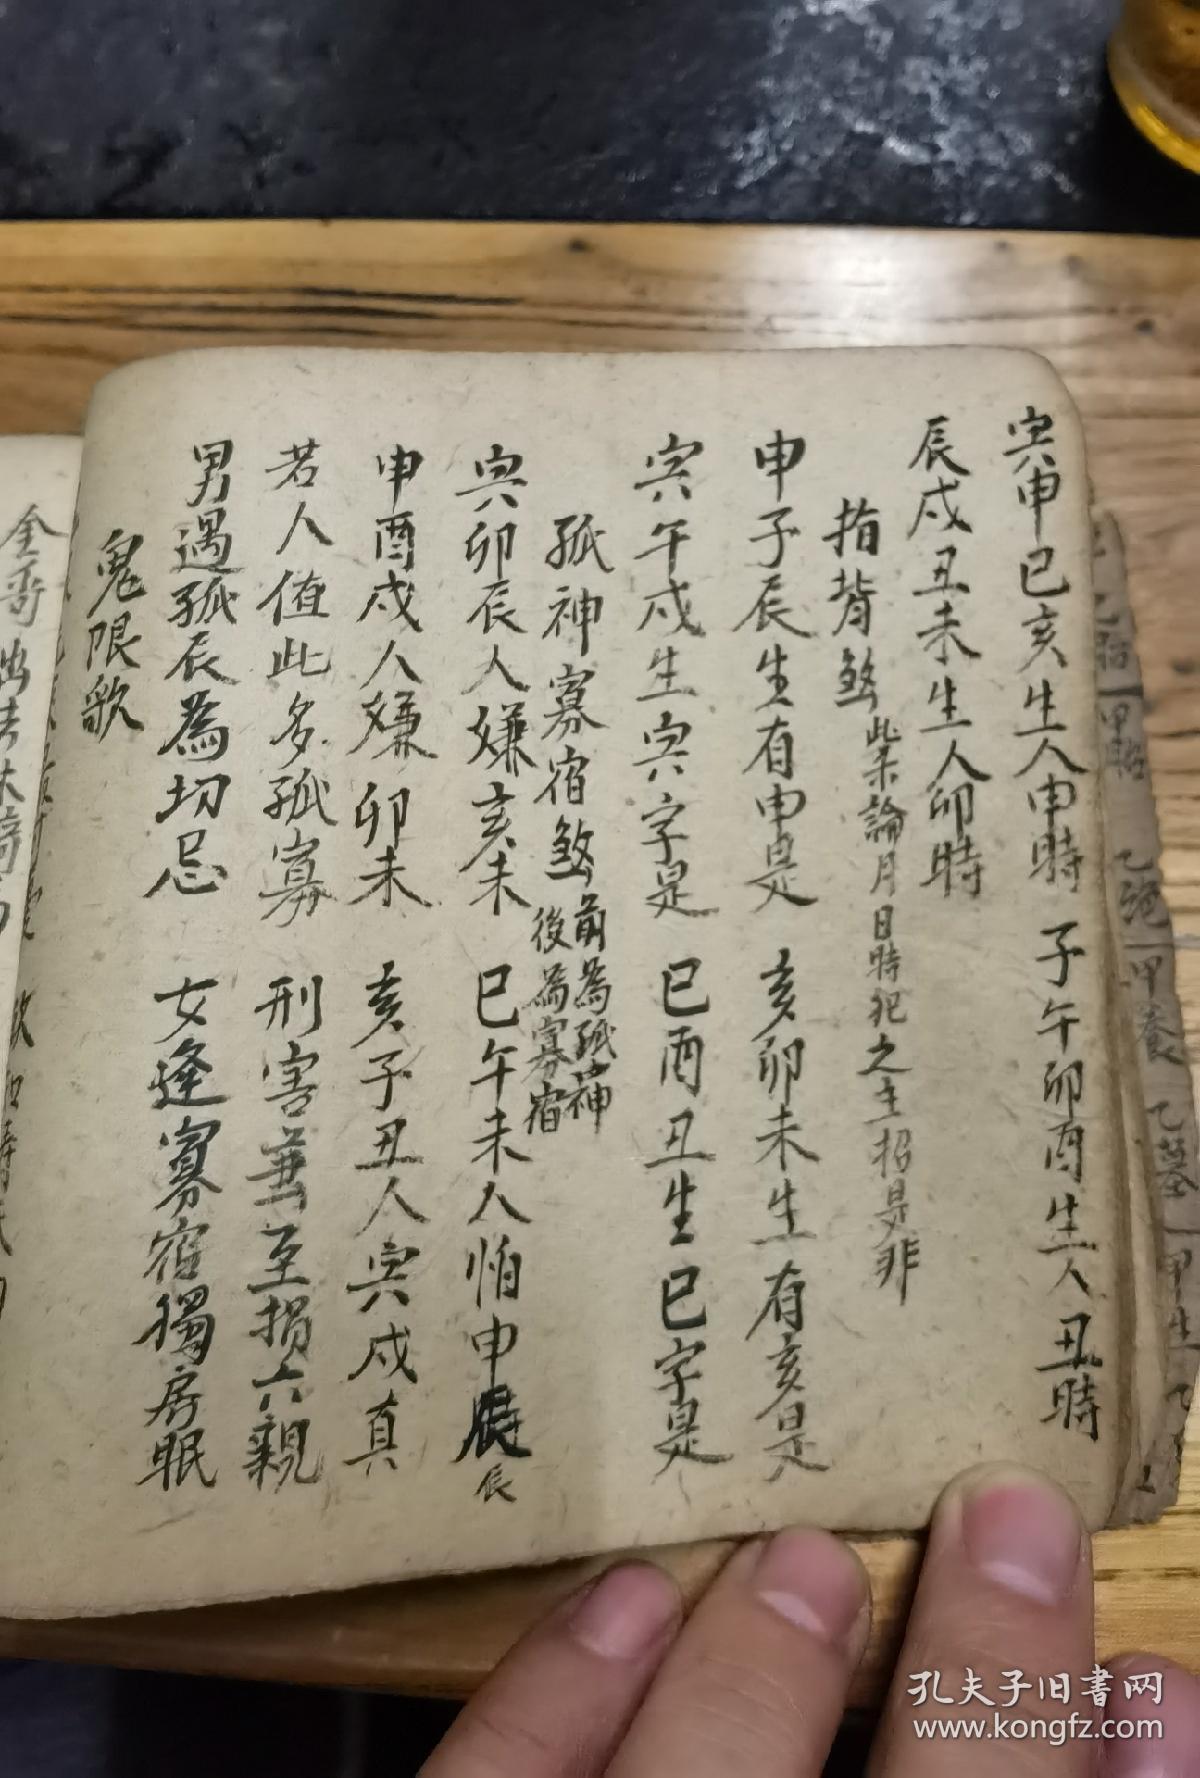 寅申巳亥生人申時 子午卯酉生人丑時
辰戌丑未生人卯時
指背煞 此系論月日時犯之主招是非
申子辰生有申是 亥卯未生有亥是
寅午戌生寅字是 巳酉丑生巳字是
孤神寡宿煞 前為孤神
後為寡宿
寅卯辰人嫌亥未 巳午未人怕申辰
申酉戌人嫌卯未 亥子丑人寅戌真
若人值此多孤寡 刑害兼至損六親
男遇孤辰為切忌 女逢寡宿獨房眠
鬼限歌
孔夫子旧书网
www.kongfz.com